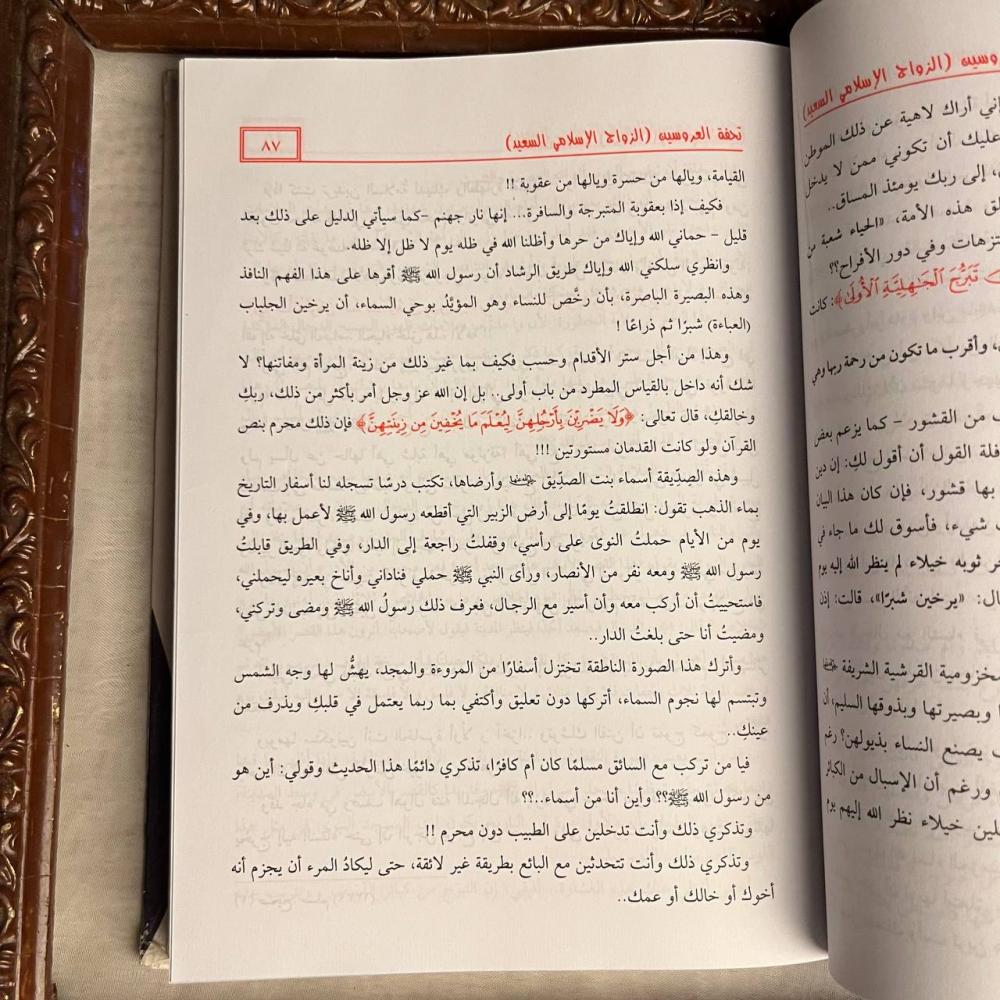 تحفة العروسين (الزواج الإسلامي السعيد)
٨٧
القيامة، ويالها من حسرة ويالها من عقوبة !!
فكيف إذا بعقوبة المتبرجة والسافرة... إنها نار جهنم –كما سيأتي الدليل على ذلك بعد
قليل – حماني الله وإياك من حرها وأظلنا الله في ظله يوم لا ظل إلا ظله.
وانظري سلكني الله وإياك طريق الرشاد أن رسول الله ﷺ أقرها على هذا الفهم النافذ
وهذه البصيرة الباصرة، بأن رخَّص للنساء وهو المؤيَّد بوحي السماء، أن يرخين الجلباب
(العباءة) شبرًا ثم ذراعًا !
وهذا من أجل ستر الأقدام وحسب فكيف بما غير ذلك من زينة المرأة ومفاتنها؟ لا
شك أنه داخل بالقياس المطرد من باب أولى.. بل إن الله عز وجل أمر بأكثر من ذلك، ربكِ
وخالقكِ، قال تعالى: ﴿وَلَا يَضْرِبْنَ بِأَرْجُلِهِنَّ لِيُعْلَمَ مَا يُخْفِينَ مِن زِينَتِهِنَّ﴾ فإن ذلك محرم بنص
القرآن ولو كانت القدمان مستورتين !!!
وهذه الصِدّيقة أسماء بنت الصدِّيق وأرضاها، تكتب درسًا تسجله لنا أسفار التاريخ
بماء الذهب تقول: انطلقتُ يومًا إلى أرض الزبير التي أقطعه رسول الله ﷺ لأعمل بها، وفي
يوم من الأيام حملتُ النوى على رأسي، وقفلتُ راجعة إلى الدار، وفي الطريق قابلتُ
رسول الله ﷺ ومعه نفر من الأنصار، ورأى النبي ﷺ حملي فناداني وأناخ بعيره ليحملني،
فاستحييتُ أن أركب معه وأن أسير مع الرجال، فعرف ذلك رسولُ الله ﷺ ومضى وتركني،
ومضيتُ أنا حتى بلغتُ الدار..
وأترك هذا الصورة الناطقة تختزل أسفارًا من المروءة والمجد، يهشُّ لها وجه الشمس
وتبتسم لها نجوم السماء، أتركها دون تعليق وأكتفي بما ربما يعتمل في قلبكِ ويذرف من
عينكِ..
فيا من تركب مع السائق مسلمًا كان أم كافرًا، تذكري دائمًا هذا الحديث وقولي: أين هو
من رسول الله ﷺ؟؟ وأين أنا من أسماء..؟؟
وتذكري ذلك وأنت تدخلين على الطبيب دون محرم !!
وتذكري ذلك وأنت تتحدثين مع البائع بطريقة غير لائقة، حتى ليكادُ المرء أن يجزم أنه
أخوك أو خالك أو عمك..
(الزواج الإسلامي السعيد)
أراك لاهية عن ذلك الموطن
عليك أن تكوني ممن لا يدخل
إلى ربك يومئذ المساق..
هذه الأمة، «الحياء شعبة من
وفي دور الأفراح؟؟
تَبَرُّجَ الْجَاهِلِيَّةِ الْأُولَىٰ﴾: كانت
، وأقرب ما تكون من رحمة ربها وهي
من القشور – كما يزعم بعض
القول أن أقول لكِ: إن دين
بها قشور، فإن كان هذا البيان
شيء، فأسوق لك ما جاء في
ثوبه خيلاء لم ينظر الله إليه يوم
«يرخين شبرًا»، قالت: إذن
القرشية الشريفة
وبصيرتها وبذوقها السليم، أن
يصنع النساء بذيولهن؟ رغم
ورغم أن الإسبال من الكبائر
خيلاء نظر الله إليهم يوم